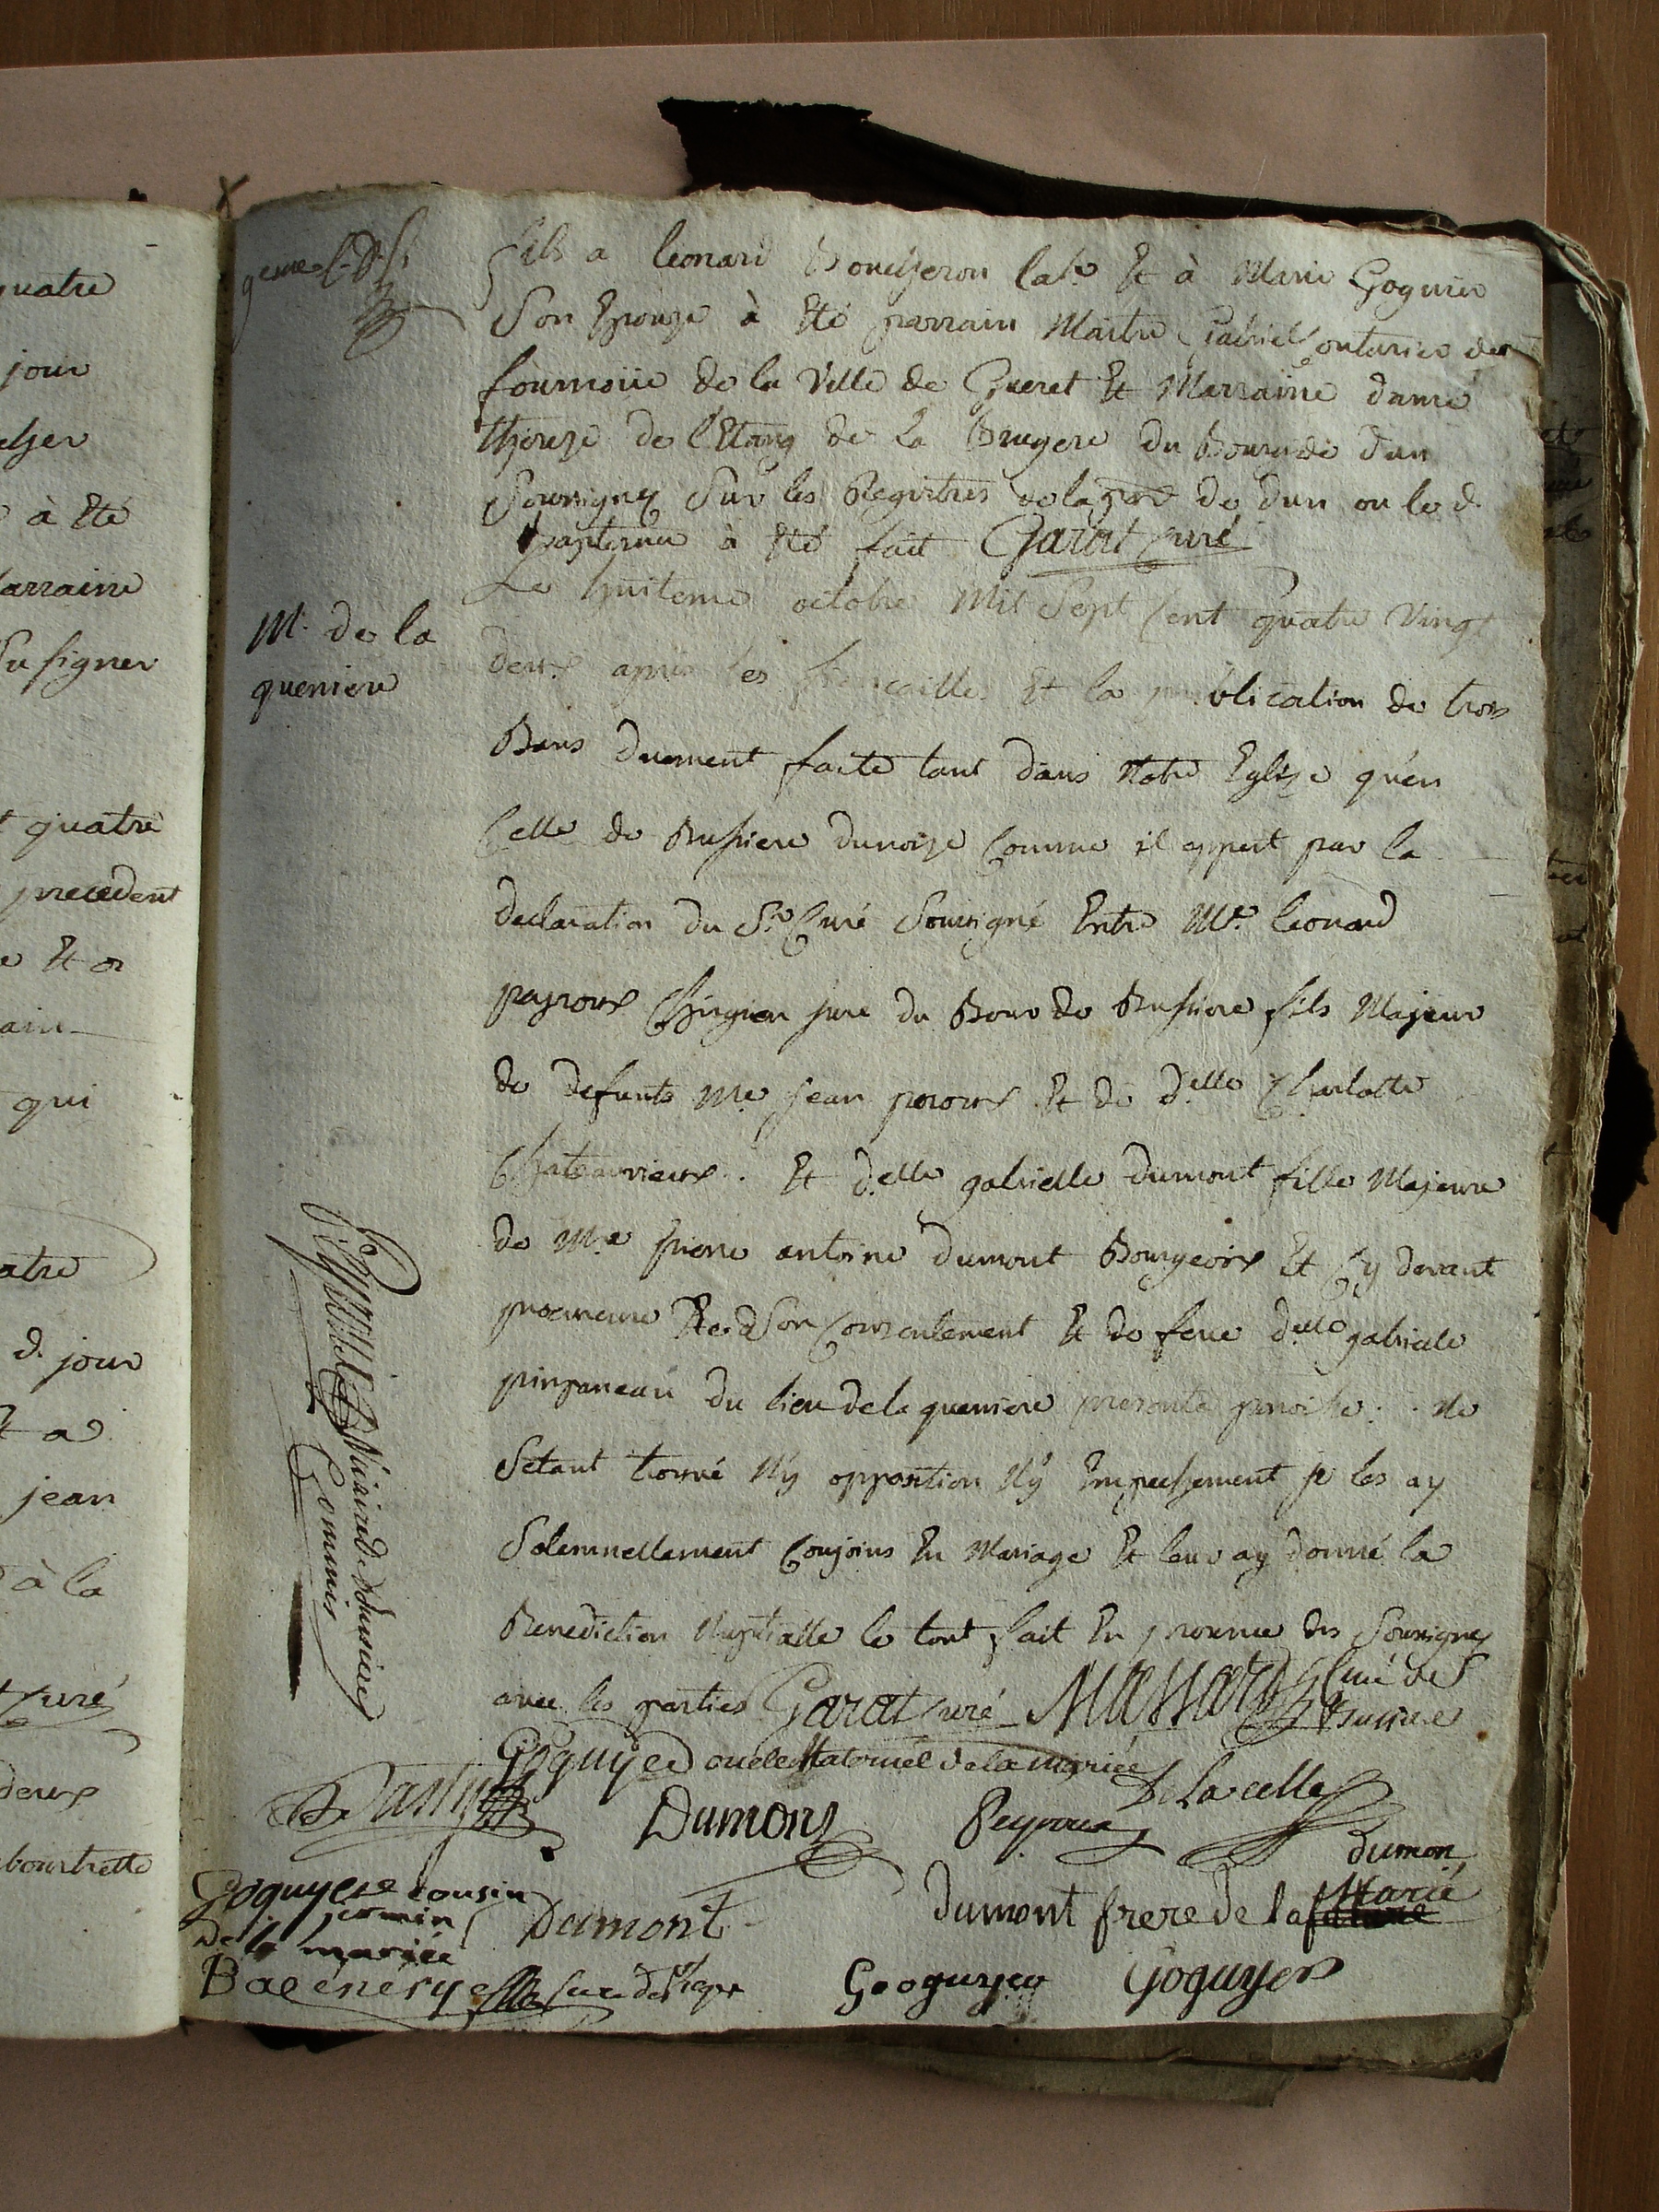 quatre
jour
à Eté
arraine
Su signer
quatre
precedent
Et a
qui
atre
d. jour
Et a
jean
à la
Curé
deux
bourliette
fils a leonard Boucheron labr Et à Marie Goguier
Son Epouze à Eté parrain Maitre Gabriel couturier de
fournoüe de la Ville de Gueret Et Marraine dame
therese de l'Etang de La Brugere du Bourg de dun
Soussignez Sur les Registres de la psse de dun ou le d.
bapteme à Eté fait Garat curé
M. de la
queriere
Le huiteme octobre Mil Sept Cent quatre Vingt
deux apris les fiancaille Et la publication de trois
Bans duement faite tant dans Notre Eglize qu'en
Celle de Bussiere dunoize Comme il appert par la
declaration du Sr Curé Soussigné Entre Me. leonard
payroux Chirgien jure du Bour de Bussiere fils Majeur
de defunts Me jean peroux Et de d.elle Charlotte
Chateauvieux. Et d.elle gabrielle dumont fille Majeure
de Me pierre antoine dumont Bourgeois Et Cy devant
procureur de Son Consentement Et de feue d.elle gabrielle
pinganeau du lieu de la queriere presente paroisse. Ne
Setant trouvé N'y opposition N'y Empechement je les ay
Solemnellement Conjoins En Mariage Et leur ay donné la
Benediction Nuptialle le tout fait En presence des Soussignez
avec les parties Garat curé Massard Curé de
Bussiere
Goguyer oncle Maternel de la mariée
Delacelle
Dumont
Peyroux
dumon
Goguyer cousin
jermin
De la mariée
Dumont
dumont frere de la Marié
Goguyer
Goguyer
Vicaire de Bussiere
Commis